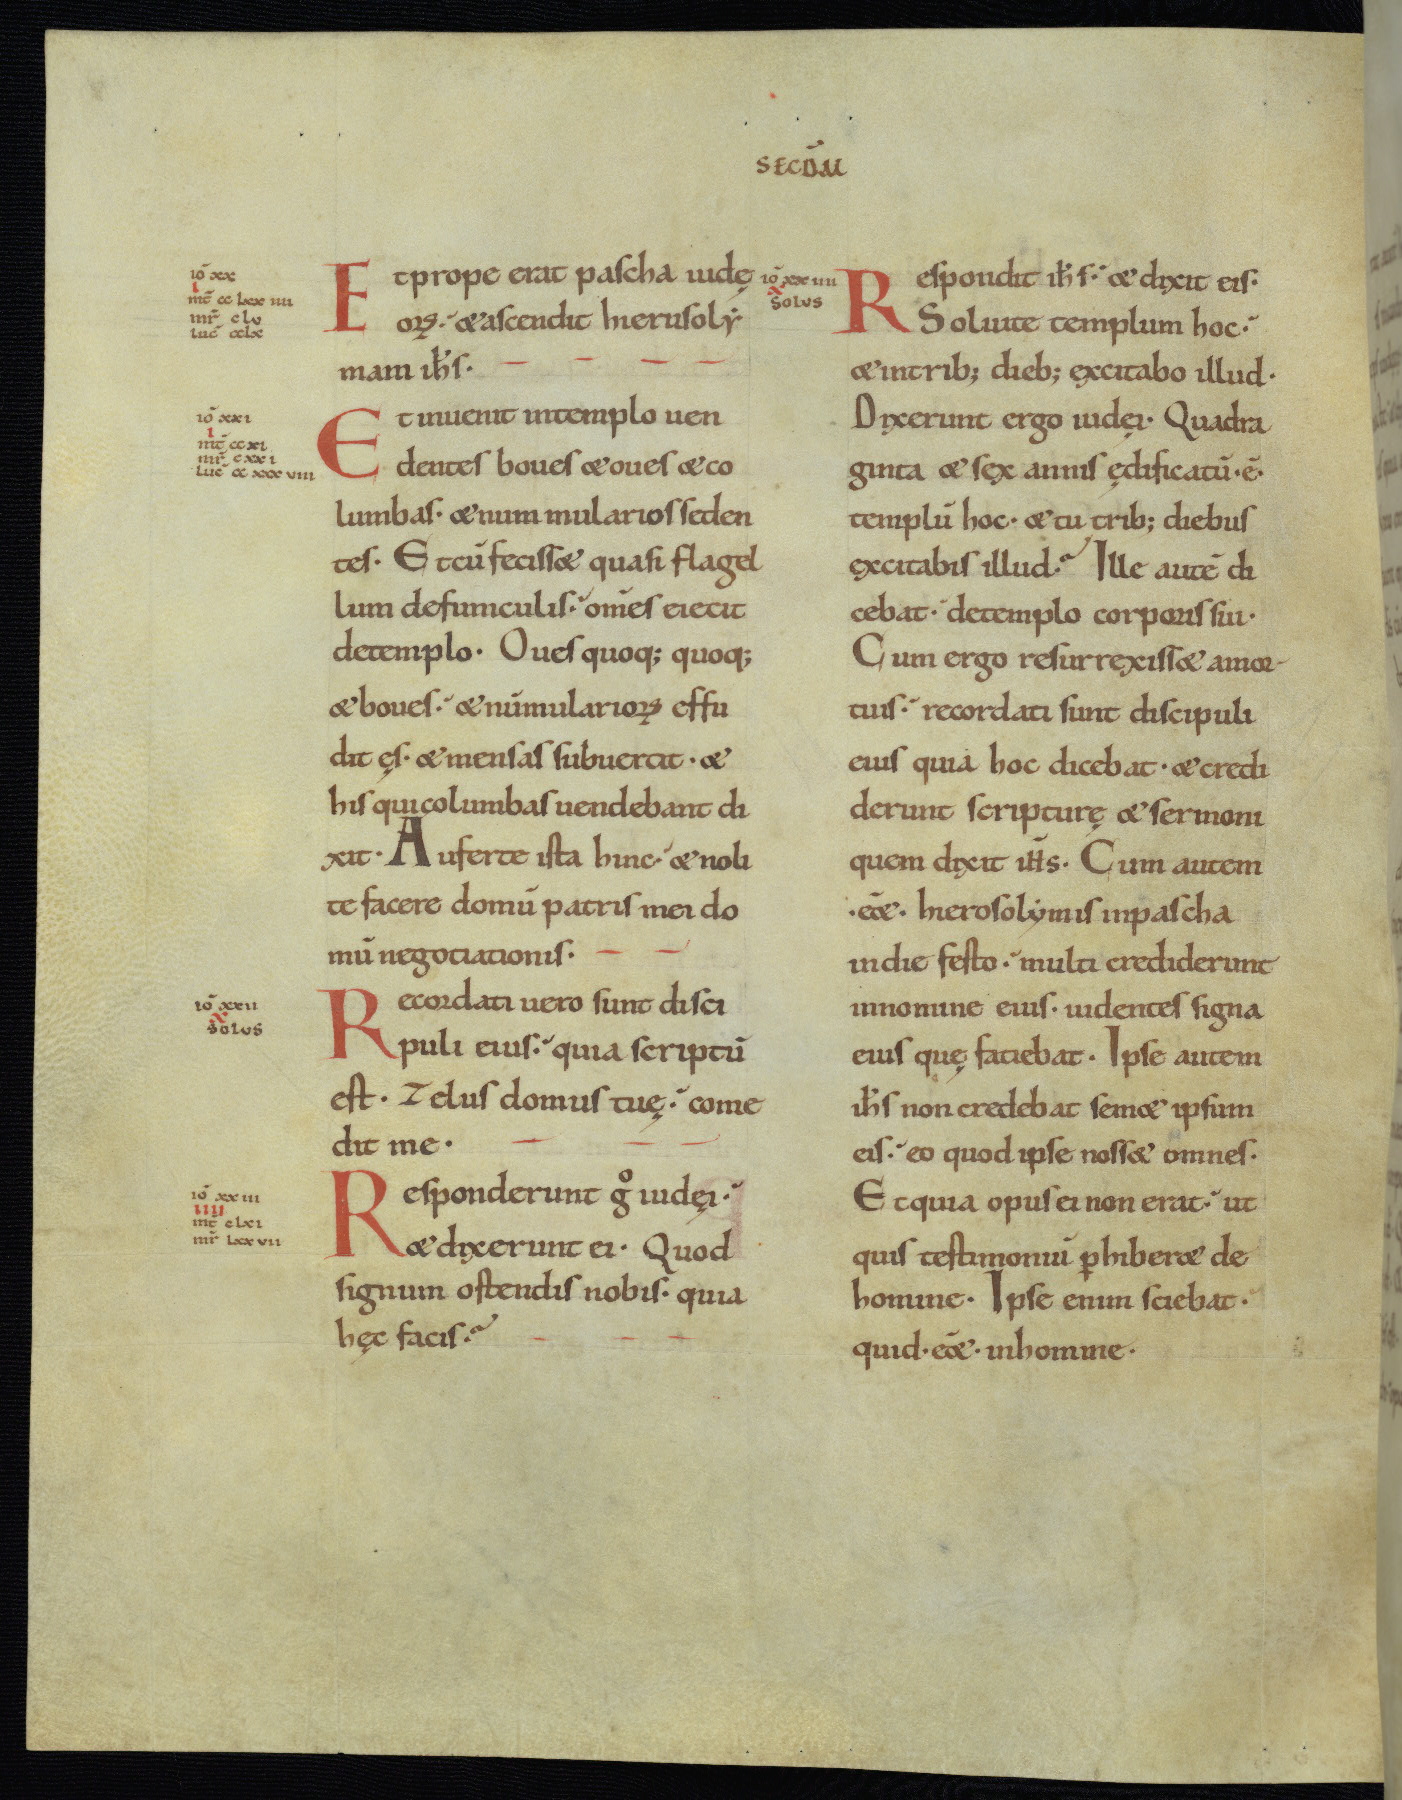 SECDM̄
iō xx
i
mt̄ cc lxx iiii
mr̄ clv
luc̄ cclx
Et prope erat pascha iudę
orꝝ. & ascendit hierusolẏ
mam ih̄s.
iō xxi
i
mt̄ cc xi
mr̄ cxxi
luc̄ cc xxxviii
Et inuenit intemplo uen
dentes boues & oues & co
lumbas. & nummularios seden
tes. Et cū feciss& quasi flagel
lum defuniculis. om̄es eiecit
detemplo. Oues quoq; quoq;
& boues. & nūmulariorꝝ effu
dit ęs. & mensas subuertit. &
his qui columbas uendebant di
xit. Auferte ista hinc. & noli
te facere domū patris mei do
mū negotiationis.
iō xxii
x
solus
Recordati uero sunt disci
puli eius. quia scriptū
est. Zelus domus tuę. come
dit me.
iō xxiii
iiii
mt̄ clxi
mr̄ lxxvii
Responderunt gͦ iudęi.
& dixerunt ei. Quod
signum ostendis nobis. quia
hęc facis.
iō xxiiii
x
solus
Respondit ih̄s. & dixit eis.
Soluite templum hoc.
& intrib; dieb; excitabo illud.
Dixerunt ergo iudęi. Quadra
ginta & sex annis ędificatū.ē.
templū hoc. & tu trib; diebus
excitabis illud. Ille autē di
cebat. detemplo corporis sui.
Cum ergo resurrexiss& amor
tuis. recordati sunt discipuli
eius quia hoc dicebat. & credi
derunt scripturę & sermoni
quem dixit ih̄s. Cum autem
.e͞e&. hierosolẏmis inpascha
indie festo. multi crediderunt
innomine eius. uidentes signa
eius quę faciebat. Ipse autem
ih̄s non credebat sem& ipsum
eis. eo quod ipse noss& omnes.
Et quia opus ei non erat. ut
quis testimoniū ꝑhiber& de
homine. Ipse enim sciebat.
quid.e͞e&. inhomine.